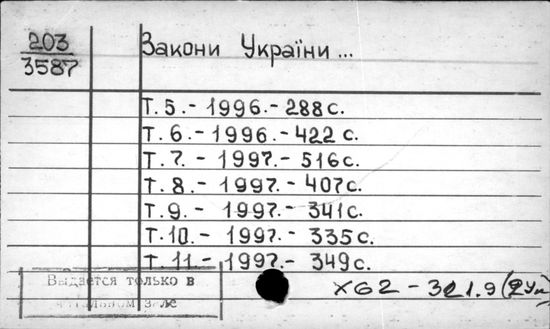 203
3587
Закони України ...
Т.5.- 1996.- 288 с.
Т.6.- 1996.- 422 с.
Т.7.- 1997.- 516 с.
Т.8.- 1997.- 407 с.
Т.9.- 1997.- 341 с.
Т.10.- 1997.- 335 с.
Т.11.- 1997.- 349 с.
Выдается только в
читальном зале
Х62 - 321.9 (2Ук)